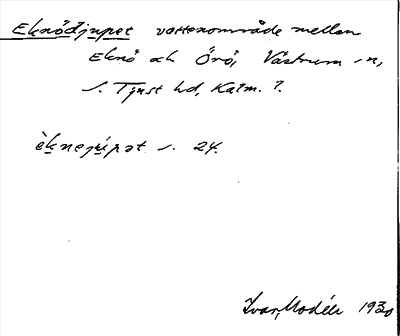 Eknödjupet vattenområde mellan
Eknö och Örö, Västrum sn,
S. Tjust hd, Kalm. l.
èknejúpat s. 24.
Ivar Modéer 1930